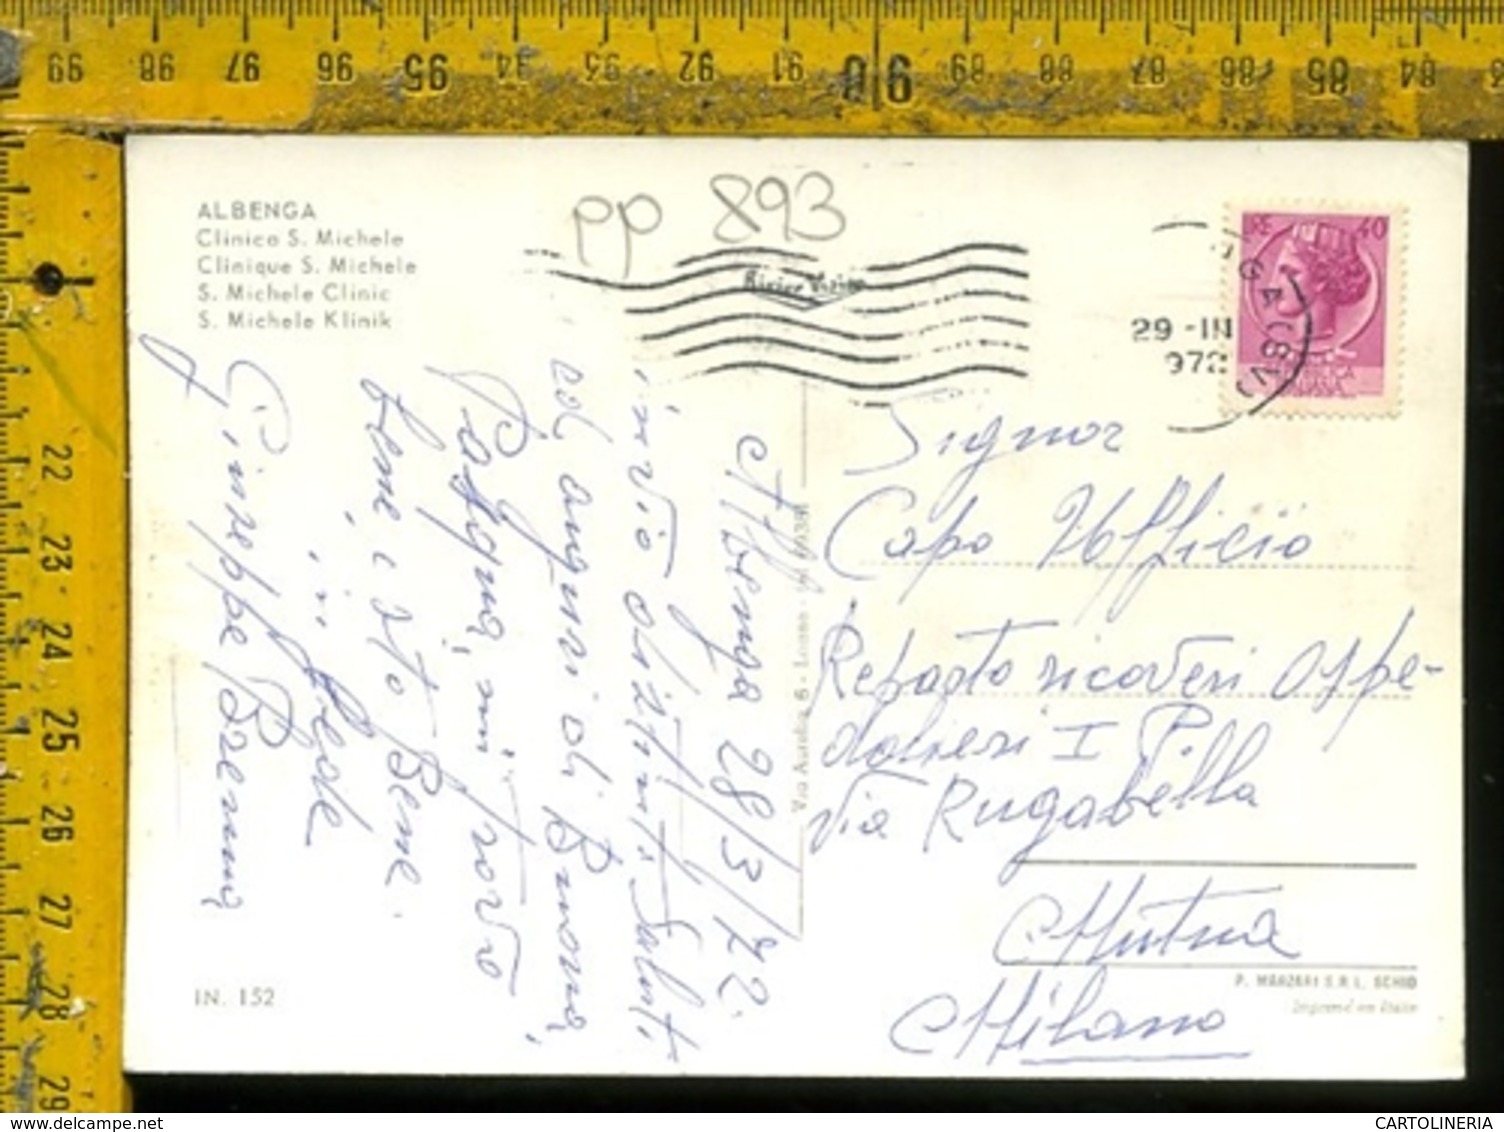 99 98 97 96 95 94 93 92 91 90 89 88 87 86 85 84
22
23
24
25
26
27
28
29
ALBENGA
Clinica S. Michele
Clinique S. Michele
S. Michele Clinic
S. Michele Klinik
pp 893
29 -III
972
40
Albenga 28/3/72.
invio distinti Saluti
ed auguri di Buona
Pasqua, mi trovo
bene e sto Bene.
in fede
Giuseppe
Via Aurelia, 6 - Loano
Signor
Capo Ufficio
Reparto ricoveri Ospe-
dalieri I Pilla
Via Rugabella
Mutua
Milano
IN. 152
P. MARZARI S.R.L. SCHIO
Imprimé en Italie
CARTOLINERIA